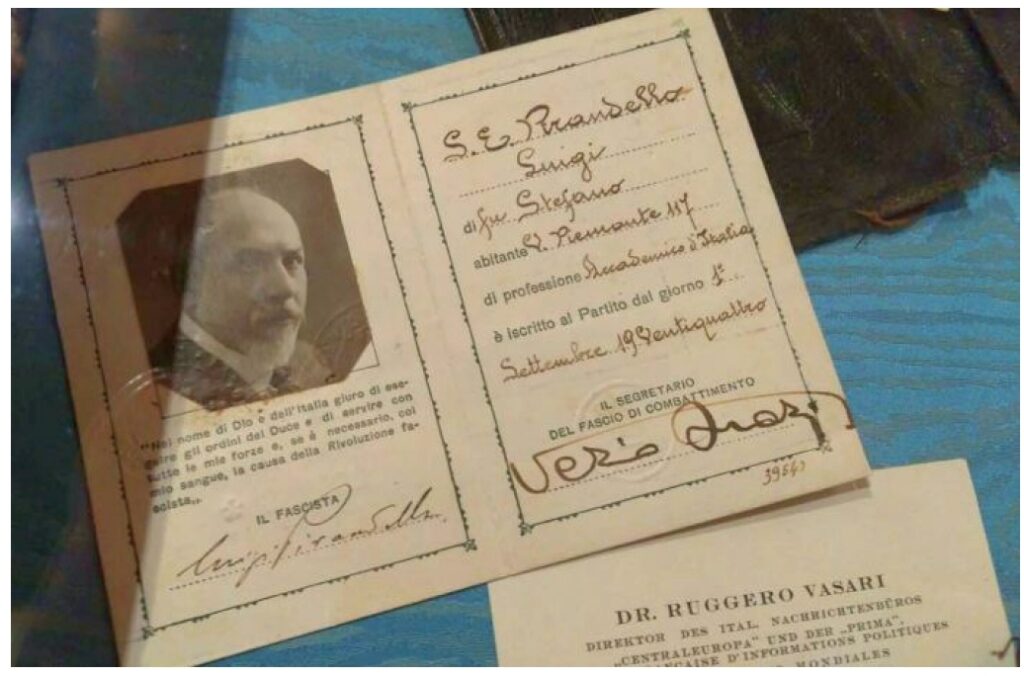 "Nel nome di Dio e dell'Italia giuro di ese-
guire gli ordini del Duce e di servire con
tutte le mie forze e, se è necessario, col
mio sangue, la causa della Rivoluzione fa-
scista„
IL FASCISTA
Luigi Pirandello
S. E. Pirandello
Luigi
di fu Stefano
abitante V. Piemonte 117
di professione Accademico d'Italia
è iscritto al Partito dal giorno 1°
Settembre 19 Ventiquattro
IL SEGRETARIO
DEL FASCIO DI COMBATTIMENTO
Vezio Orazi
DR. RUGGERO VASARI
DIREKTOR DES ITAL. NACHRICHTENBÜROS
„CENTRALEUROPA" UND DER „PRIMA",
D'INFORMATIONS POLITIQUES
MONDIALES